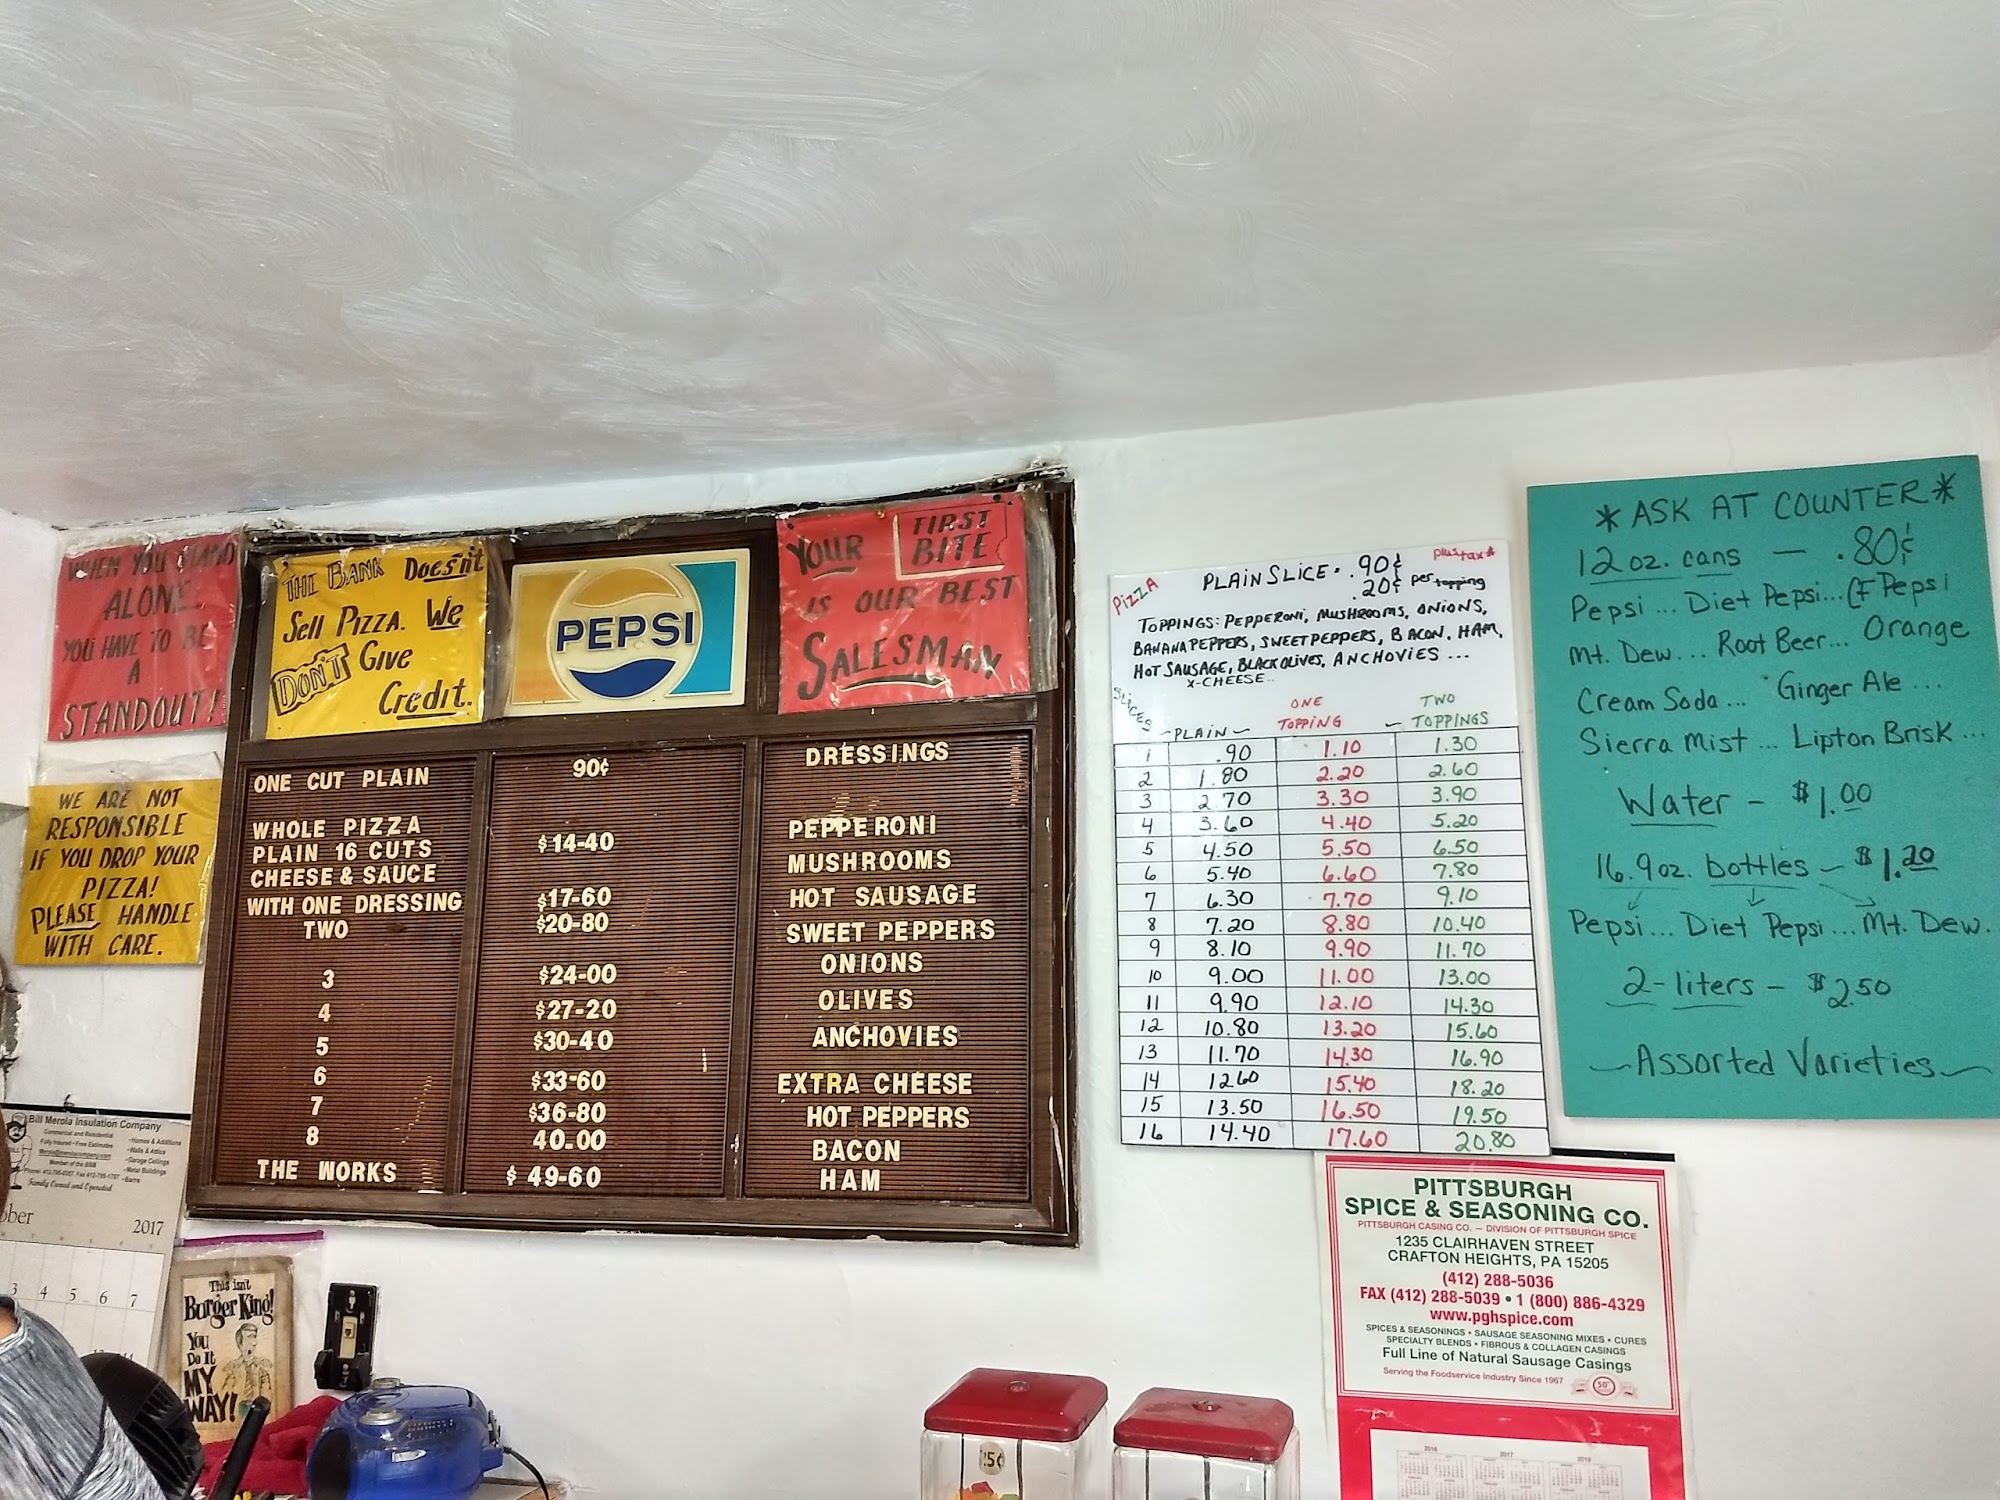 WHEN YOU STAND
ALONE
YOU HAVE TO BE
A
STANDOUT!
WE ARE NOT
RESPONSIBLE
IF YOU DROP YOUR
PIZZA!
PLEASE HANDLE
WITH CARE.
THE BANK Doesn't
Sell PIZZA. We
DON'T Give
Credit.
PEPSI
YOUR FIRST BITE
IS OUR BEST
SALESMAN
ONE CUT PLAIN 90¢
WHOLE PIZZA
PLAIN 16 CUTS $14-40
CHEESE & SAUCE
WITH ONE DRESSING $17-60
TWO $20-80
3 $24-00
4 $27-20
5 $30-40
6 $33-60
7 $36-80
8 40.00
THE WORKS $ 49-60
DRESSINGS
PEPPERONI
MUSHROOMS
HOT SAUSAGE
SWEET PEPPERS
ONIONS
OLIVES
ANCHOVIES
EXTRA CHEESE
HOT PEPPERS
BACON
HAM
PIZZA PLAIN SLICE - .90¢ plus tax
.20¢ per topping
TOPPINGS: PEPPERONI, MUSHROOMS, ONIONS,
BANANA PEPPERS, SWEET PEPPERS, BACON, HAM,
HOT SAUSAGE, BLACK OLIVES, ANCHOVIES ...
X-CHEESE..
SLICES ~PLAIN~ ONE TOPPING ~ TWO TOPPINGS
1 .90 1.10 1.30
2 1.80 2.20 2.60
3 2.70 3.30 3.90
4 3.60 4.40 5.20
5 4.50 5.50 6.50
6 5.40 6.60 7.80
7 6.30 7.70 9.10
8 7.20 8.80 10.40
9 8.10 9.90 11.70
10 9.00 11.00 13.00
11 9.90 12.10 14.30
12 10.80 13.20 15.60
13 11.70 14.30 16.90
14 12.60 15.40 18.20
15 13.50 16.50 19.50
16 14.40 17.60 20.80
* ASK AT COUNTER *
12 oz. cans — .80¢
Pepsi ... Diet Pepsi ... CF Pepsi
Mt. Dew ... Root Beer ... Orange
Cream Soda ... Ginger Ale ...
Sierra Mist ... Lipton Brisk ...
Water - $1.00
16.9oz. bottles - $1.20
Pepsi ... Diet Pepsi ... Mt. Dew.
2-liters - $2.50
~Assorted Varieties~
Bill Merola Insulation Company
Commercial and Residential
Fully Insured • Free Estimates
Member of the BBB
Family Owned and Operated
• Homes & Additions
• Walls & Attics
• Garage Ceilings
• Metal Buildings
• Barns
ober 2017
3 4 5 6 7
This isn't
Burger King!
You
Do It
MY
WAY!
PITTSBURGH
SPICE & SEASONING CO.
PITTSBURGH CASING CO. — DIVISION OF PITTSBURGH SPICE
1235 CLAIRHAVEN STREET
CRAFTON HEIGHTS, PA 15205
(412) 288-5036
FAX (412) 288-5039 • 1 (800) 886-4329
www.pghspice.com
SPICES & SEASONINGS • SAUSAGE SEASONING MIXES • CURES
SPECIALTY BLENDS • FIBROUS & COLLAGEN CASINGS
Full Line of Natural Sausage Casings
Serving the Foodservice Industry Since 1967
50
2016 2017 2018
25¢